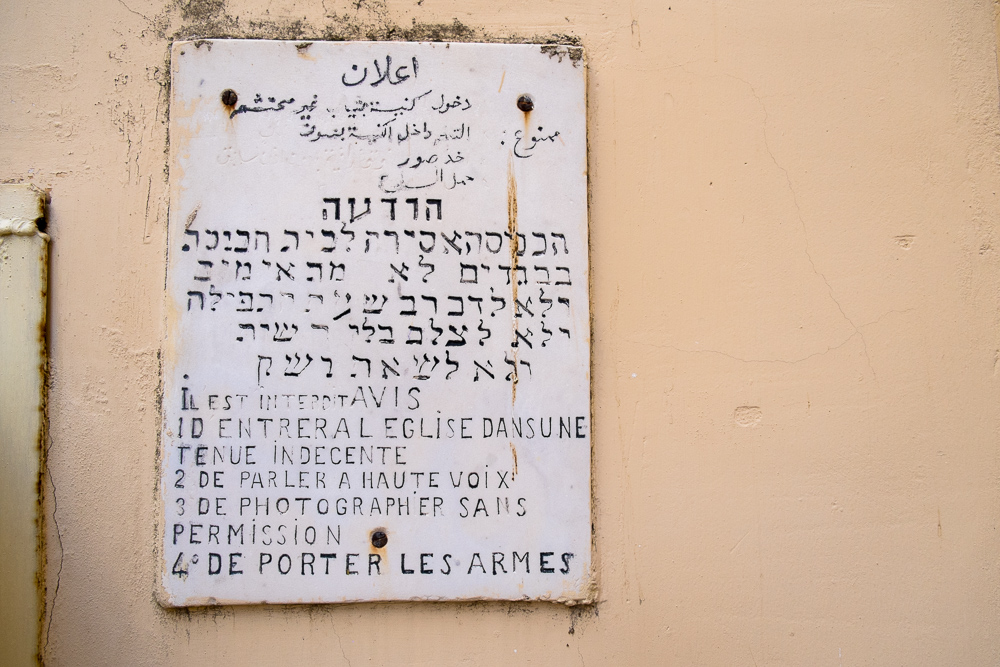 اعلان
دخول كنيسة بثياب غير محتشم
ممنوع : التكلم داخل الكنيسة بصوت
خد صور
حمل السلاح
הודעה
הכניסה אסירה לבית הכנסת
בבגדים לא מתאימים
ולא לדבר בשעת התפילה
ולא לצלם בלי רשית
ולא לשאת נשק
IL EST INTERDIT AVIS
1D ENTRER A L EGLISE DANS UNE
TENUE INDECENTE
2 DE PARLER A HAUTE VOIX
3 DE PHOTOGRAPHIER SANS
PERMISSION
4° DE PORTER LES ARMES